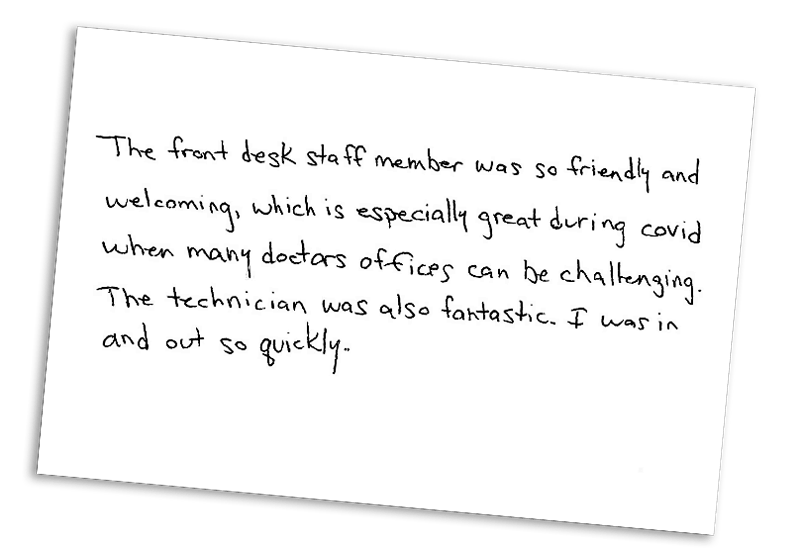 The front desk staff member was so friendly and
welcoming, which is especially great during covid
when many doctors offices can be challenging.
The technician was also fantastic. I was in
and out so quickly.